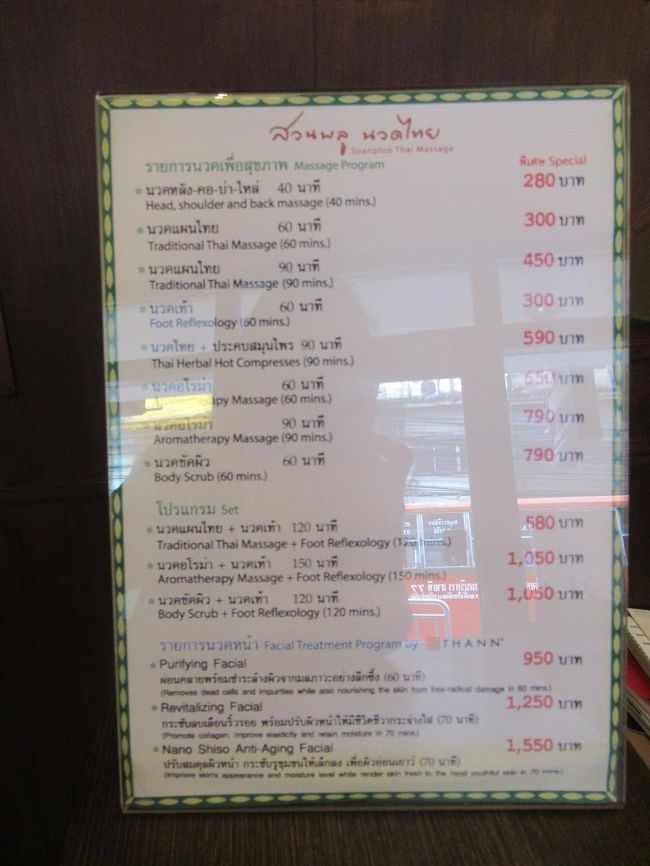 สวนพลู นวดไทย
Suanploo Thai Massage
รายการนวดเพื่อสุขภาพ Massage Program พิเศษ Special
นวดหลัง-คอ-บ่า-ไหล่ 40 นาที 280 บาท
Head, shoulder and back massage (40 mins.)
นวดแผนไทย 60 นาที 300 บาท
Traditional Thai Massage (60 mins.)
นวดแผนไทย 90 นาที 450 บาท
Traditional Thai Massage (90 mins.)
นวดเท้า 60 นาที 300 บาท
Foot Reflexology (60 mins.)
นวดไทย + ประคบสมุนไพร 90 นาที 590 บาท
Thai Herbal Hot Compresses (90 mins.)
นวดอโรม่า 60 นาที 650 บาท
Aromatherapy Massage (60 mins.)
นวดอโรม่า 90 นาที 790 บาท
Aromatherapy Massage (90 mins.)
นวดขัดผิว 60 นาที 790 บาท
Body Scrub (60 mins.)
โปรแกรม Set
นวดแผนไทย + นวดเท้า 120 นาที 580 บาท
Traditional Thai Massage + Foot Reflexology (120 mins.)
นวดอโรม่า + นวดเท้า 150 นาที 1,050 บาท
Aromatherapy Massage + Foot Reflexology (150 mins.)
นวดขัดผิว + นวดเท้า 120 นาที 1,050 บาท
Body Scrub + Foot Reflexology (120 mins.)
รายการนวดหน้า Facial Treatment Program by THANN
Purifying Facial 950 บาท
ผ่อนคลายพร้อมชำระล้างผิวจากมลภาวะอย่างล้ำลึก (60 นาที)
(Removes dead cells and impurities while also nourishing the skin from free-radical damage in 60 mins.)
Revitalizing Facial 1,250 บาท
กระชับลบเลือนริ้วรอย พร้อมปรับผิวหน้าให้มีชีวิตชีวากระจ่างใส (70 นาที)
(Promote collagen, improve elasticity and retain moisture in 70 mins.)
Nano Shiso Anti-Aging Facial 1,550 บาท
ปรับสมดุลผิวหน้า กระชับรูขุมขนให้เล็กลง เพื่อผิวอ่อนเยาว์ (70 นาที)
(Improve skin's appearance and moisture level while render skin fresh to the most youthful skin in 70 mins.)